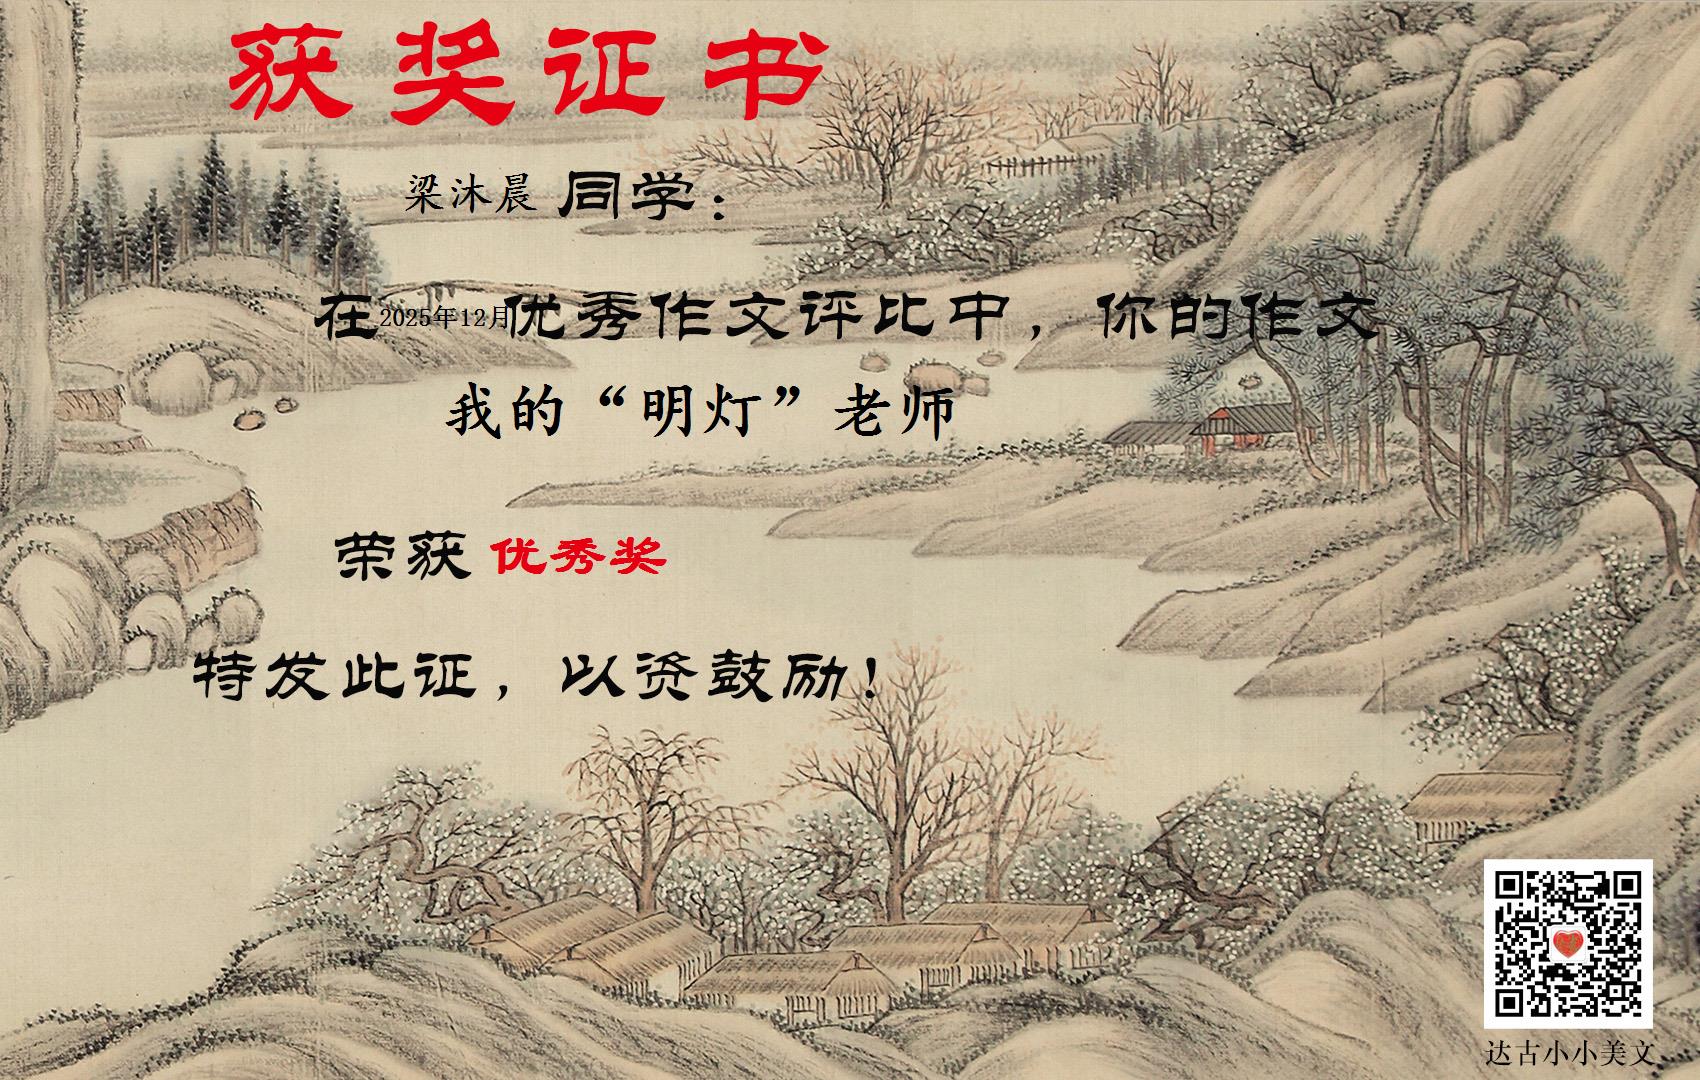 获奖证书
梁沐晨 同学：
在2025年12月优秀作文评比中，你的作文
我的“明灯”老师
荣获 优秀奖
特发此证，以资鼓励！
达古小小美文